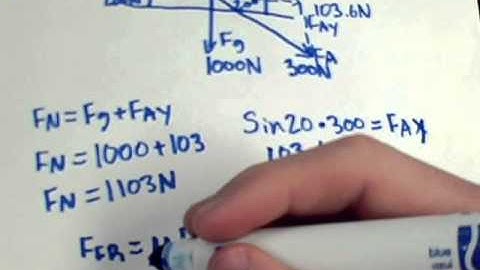 103.6N
FAY
Fg
FA
1000N
300N
FN = Fg + FAY
Sin20 • 300 = FAY
FN = 1000 + 103
FN = 1103N
FFR = μ
blue